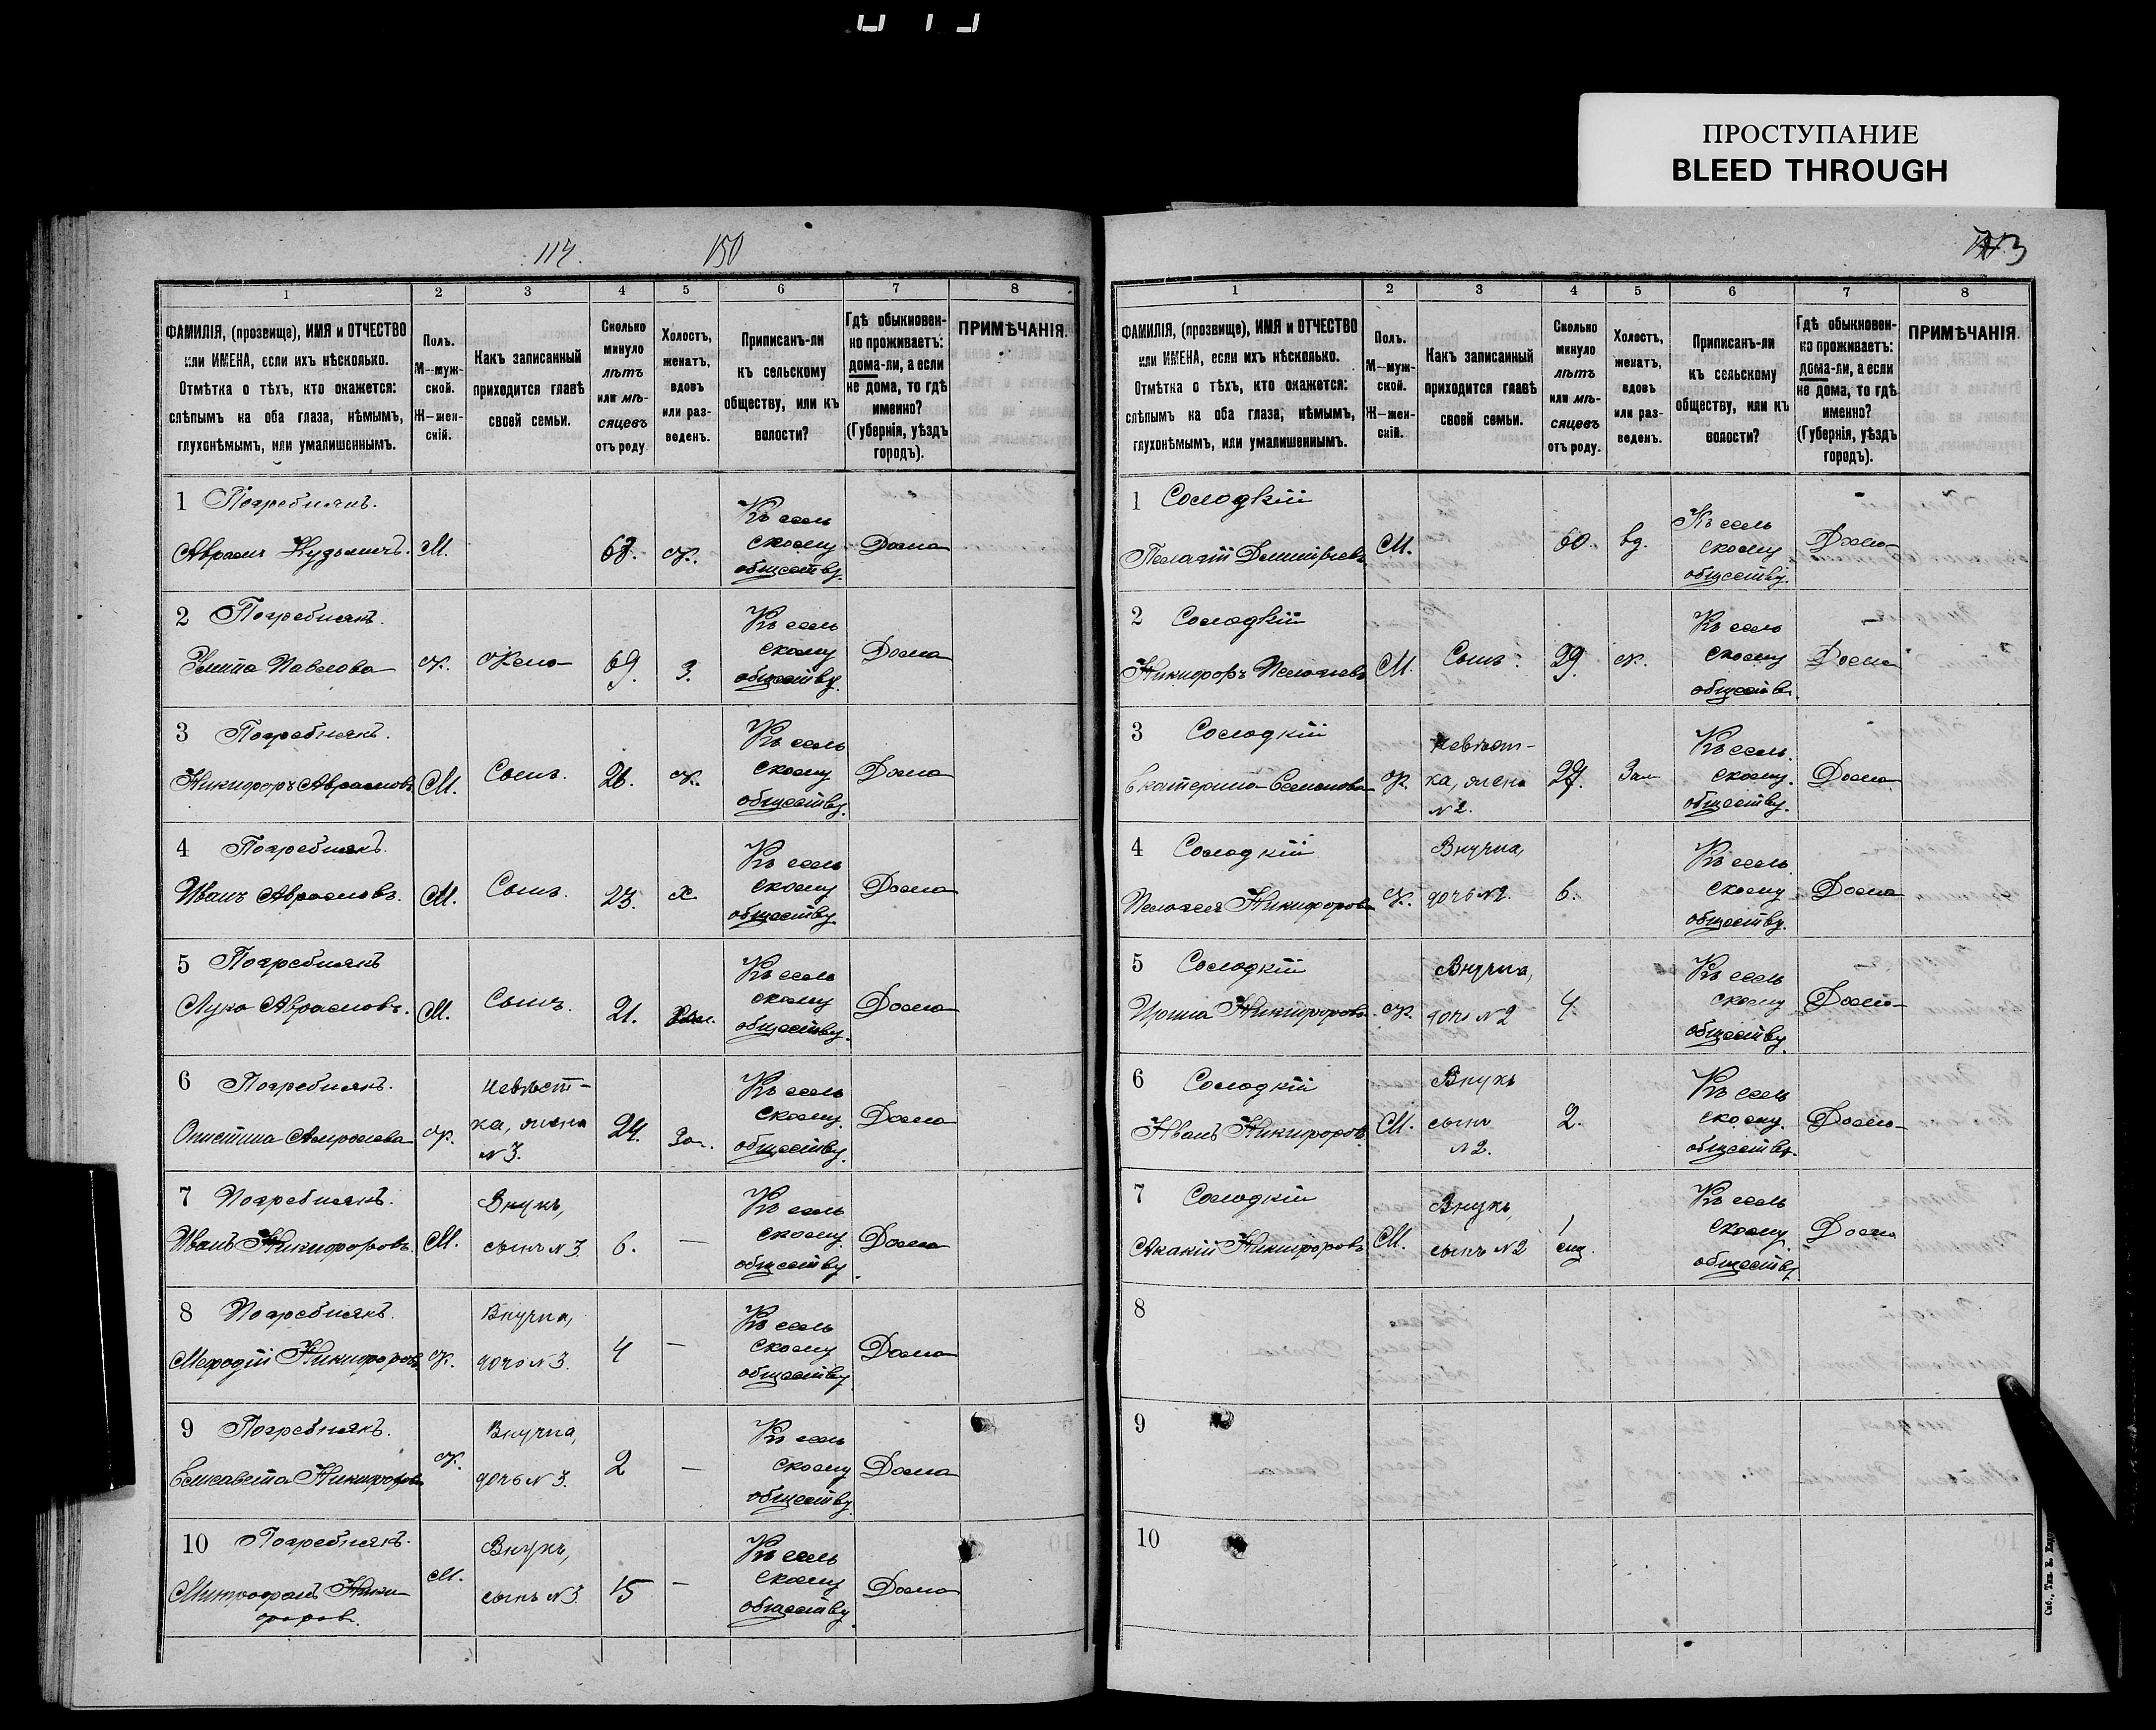 ПРОСТУПАНИЕ
BLEED THROUGH
114.
150
1 2 3 4 5 6 7 8
ФАМИЛІЯ, (прозвище), ИМЯ и ОТЧЕСТВО
или ИМЕНА, если ихъ нѣсколько.
Отмѣтка о тѣхъ, кто окажется:
слѣпымъ на оба глаза, нѣмымъ,
глухонѣмымъ, или умалишеннымъ.
Полъ.
М—муж-
ской.
Ж—жен-
скій.
Какъ записанный
приходится главѣ
своей семьи.
Сколько
минуло
лѣтъ
или мѣ-
сяцевъ
отъ роду
Холостъ,
женатъ,
вдовъ
или раз-
веденъ.
Приписанъ-ли
къ сельскому
обществу, или къ
волости?
Гдѣ обыкновен-
но проживаетъ:
дома-ли, а если
не дома, то гдѣ
именно?
(Губернія, уѣздъ
городъ).
ПРИМѢЧАНІЯ.
1 Погребнякъ.
М. 67. ж.
Къ сель
скому
обществу.
Дома
2 Погребнякъ.
Павлова ж. Жена 69. З.
Къ сель
скому
обществу.
Дома
3 Погребнякъ.
Никифоръ Аврамовъ М. Сынъ. 26. ж.
Къ сель
скому
обществу.
Дома
4 Погребнякъ.
Иванъ Аврамовъ. М. Сынъ. 23. х.
Къ сель
скому
обществу.
Дома
5 Погребнякъ
Лука Аврамовъ. М. Сынъ. 21.
Къ сель
скому
обществу.
Дома
6 Погребнякъ.
ж.
Невѣст-
ка, жена
№3.
24. Зам.
Къ сель
скому
обществу.
Дома
7 Погребнякъ.
Иванъ Никифоровъ. М.
Внукъ,
сынъ №3
6. —
Къ сель
скому
обществу.
Дома
8 Погребнякъ.
Никифоров ж.
Внучка,
дочь №3.
4 —
Къ сель
скому
обществу.
Дома
9 Погребнякъ.
Елисавета Никифоров ж.
Внучка,
дочь №3.
2 —
Къ сель
скому
обществу.
Дома
10 Погребнякъ.
Митрофанъ Ники-
форов. М.
Внукъ,
сынъ №3.
—
Къ сель
скому
обществу.
Дома
1 2 3 4 5 6 7 8
ФАМИЛІЯ, (прозвище), ИМЯ и ОТЧЕСТВО
или ИМЕНА, если ихъ нѣсколько.
Отмѣтка о тѣхъ, кто окажется:
слѣпымъ на оба глаза, нѣмымъ,
глухонѣмымъ, или умалишеннымъ.
Полъ.
М—муж-
ской.
Ж—жен-
скій.
Какъ записанный
приходится главѣ
своей семьи.
Сколько
минуло
лѣтъ
или мѣ-
сяцевъ
отъ роду.
Холостъ,
женатъ,
вдовъ
или раз-
веденъ.
Приписанъ-ли
къ сельскому
обществу, или къ
волости?
Гдѣ обыкновен-
но проживаетъ:
дома-ли, а если
не дома, то гдѣ
именно?
(Губернія, уѣздъ
городъ).
ПРИМѢЧАНІЯ.
1 Солодкій
Пелагій Дмитріевъ М. 60. вд.
Къ сель
скому
обществу.
Дома
2 Солодкій
Никифоръ Пелагіевъ М. Сынъ. 29. ж.
Къ сель
скому
обществ.
Дома
3 Солодкій
Екатерина Семенова ж.
Невѣст-
ка, жена
№2.
27. Зам
Къ сель
скому
обществу.
Дома
4 Солодкій
Пелагея Никифорова ж.
Внучка,
дочь №2.
6.
Къ сель
скому
обществу.
Дома
5 Солодкій
Ирина Никифорова ж.
Внучка,
дочь №2
4.
Къ сель
скому
обществу.
Дома
6 Солодкій
Иванъ Никифоровъ М.
Внукъ
сынъ
№2.
2.
Къ сель
скому
обществу.
Дома
7 Солодкій
Акакій Никифоровъ М.
Внукъ,
сынъ №2
1
Къ сель
скому
обществу
Дома
8
9
10